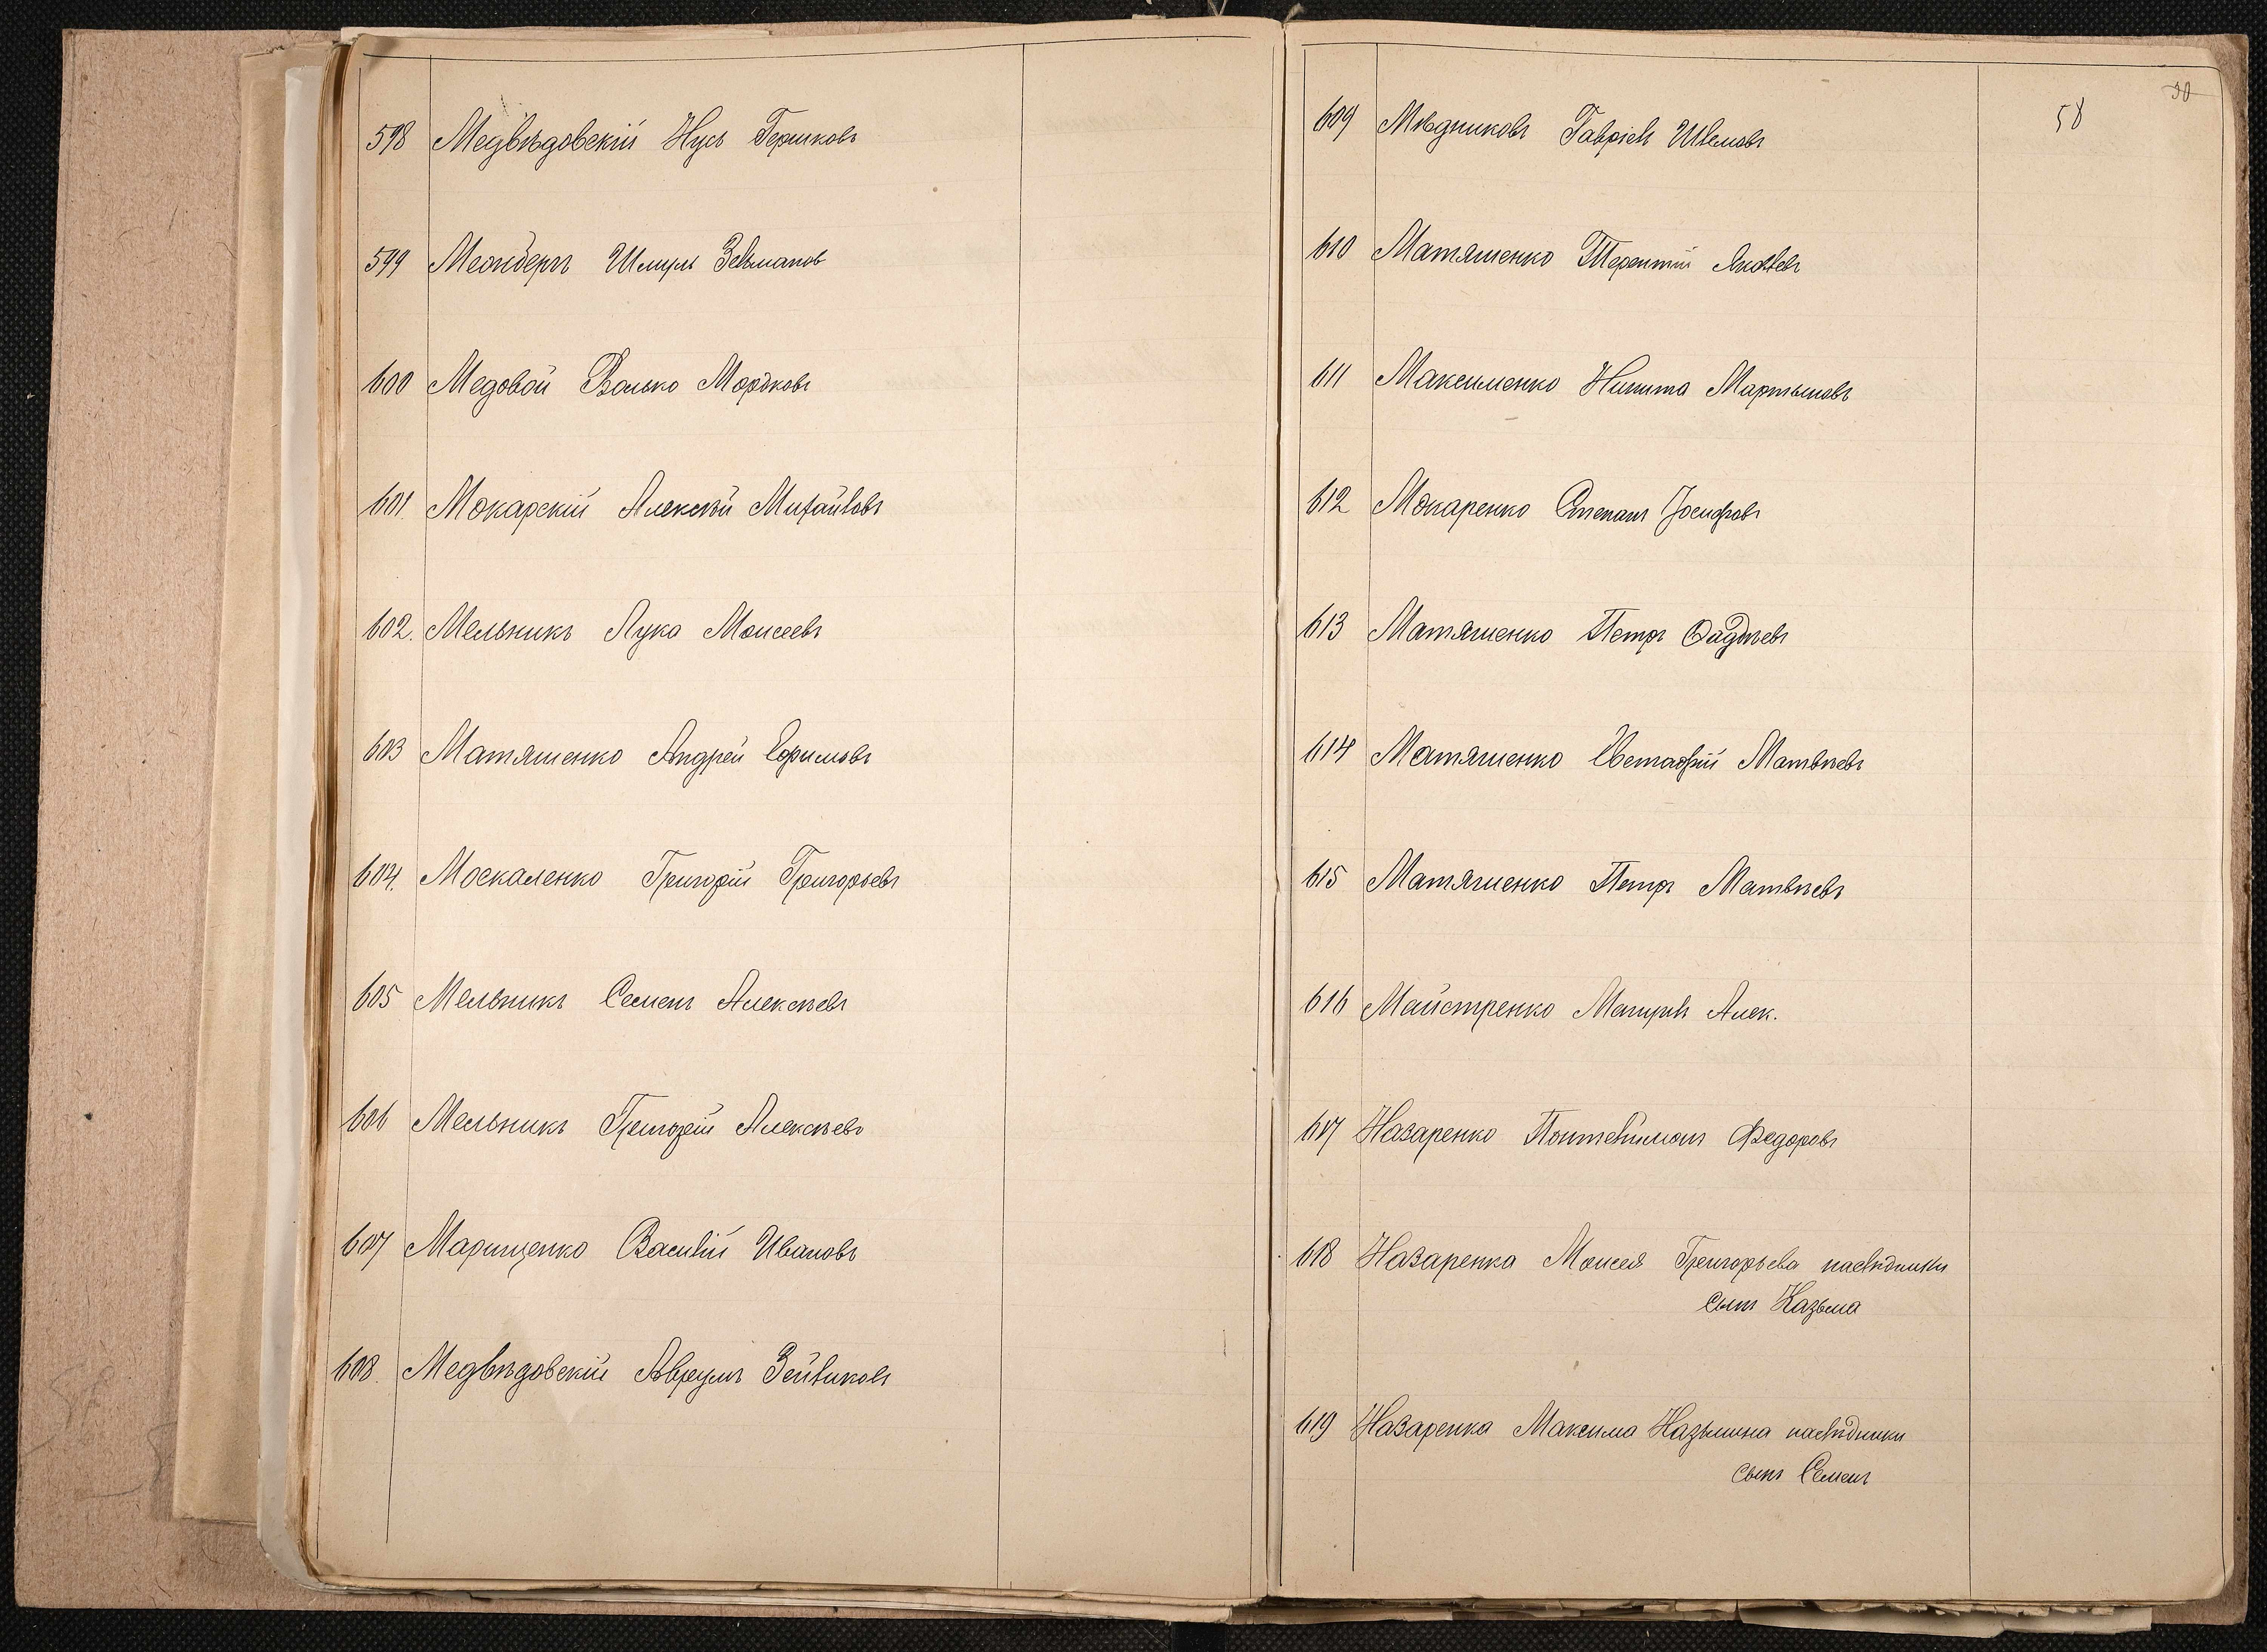 598 Медвѣдовскій Нусь Гершковъ
599 Меонбергъ Шмуль Зельманов
600 Медовой Волько Мордковъ
601. Мокарскій Алексѣй Михайловъ
602. Мельникъ Лука Моисеевъ
603 Матяшенко Андрей Ефимовъ
604. Москаленко Григорій Григорьевъ
605 Мельникъ Семенъ Алексѣевъ
606 Мельникъ Григорій Алексѣевъ
607 Марищенко Василій Ивановъ
608. Медвѣдовскій Аврумъ Зейликовъ
30
58
609 Мѣдниковъ Гавріель
610 Матяшенко Терентій Яковлевъ
611 Максименко Никита Мартыновъ
612 Макаренко Степанъ Іосифовъ
613 Матяшенко Петръ Фадѣевъ
614 Матяшенко Евстафій Матвѣевъ
615 Матяшенко Петръ Матвѣевъ
616 Майстренко Алек.
617 Назаренко Понтелимонъ Федоровъ
618 Назаренка Моисея Григорьева наслѣдники
сынъ Казьма
619 Назаренка Максима Казьмина наслѣдники
сынъ Семенъ